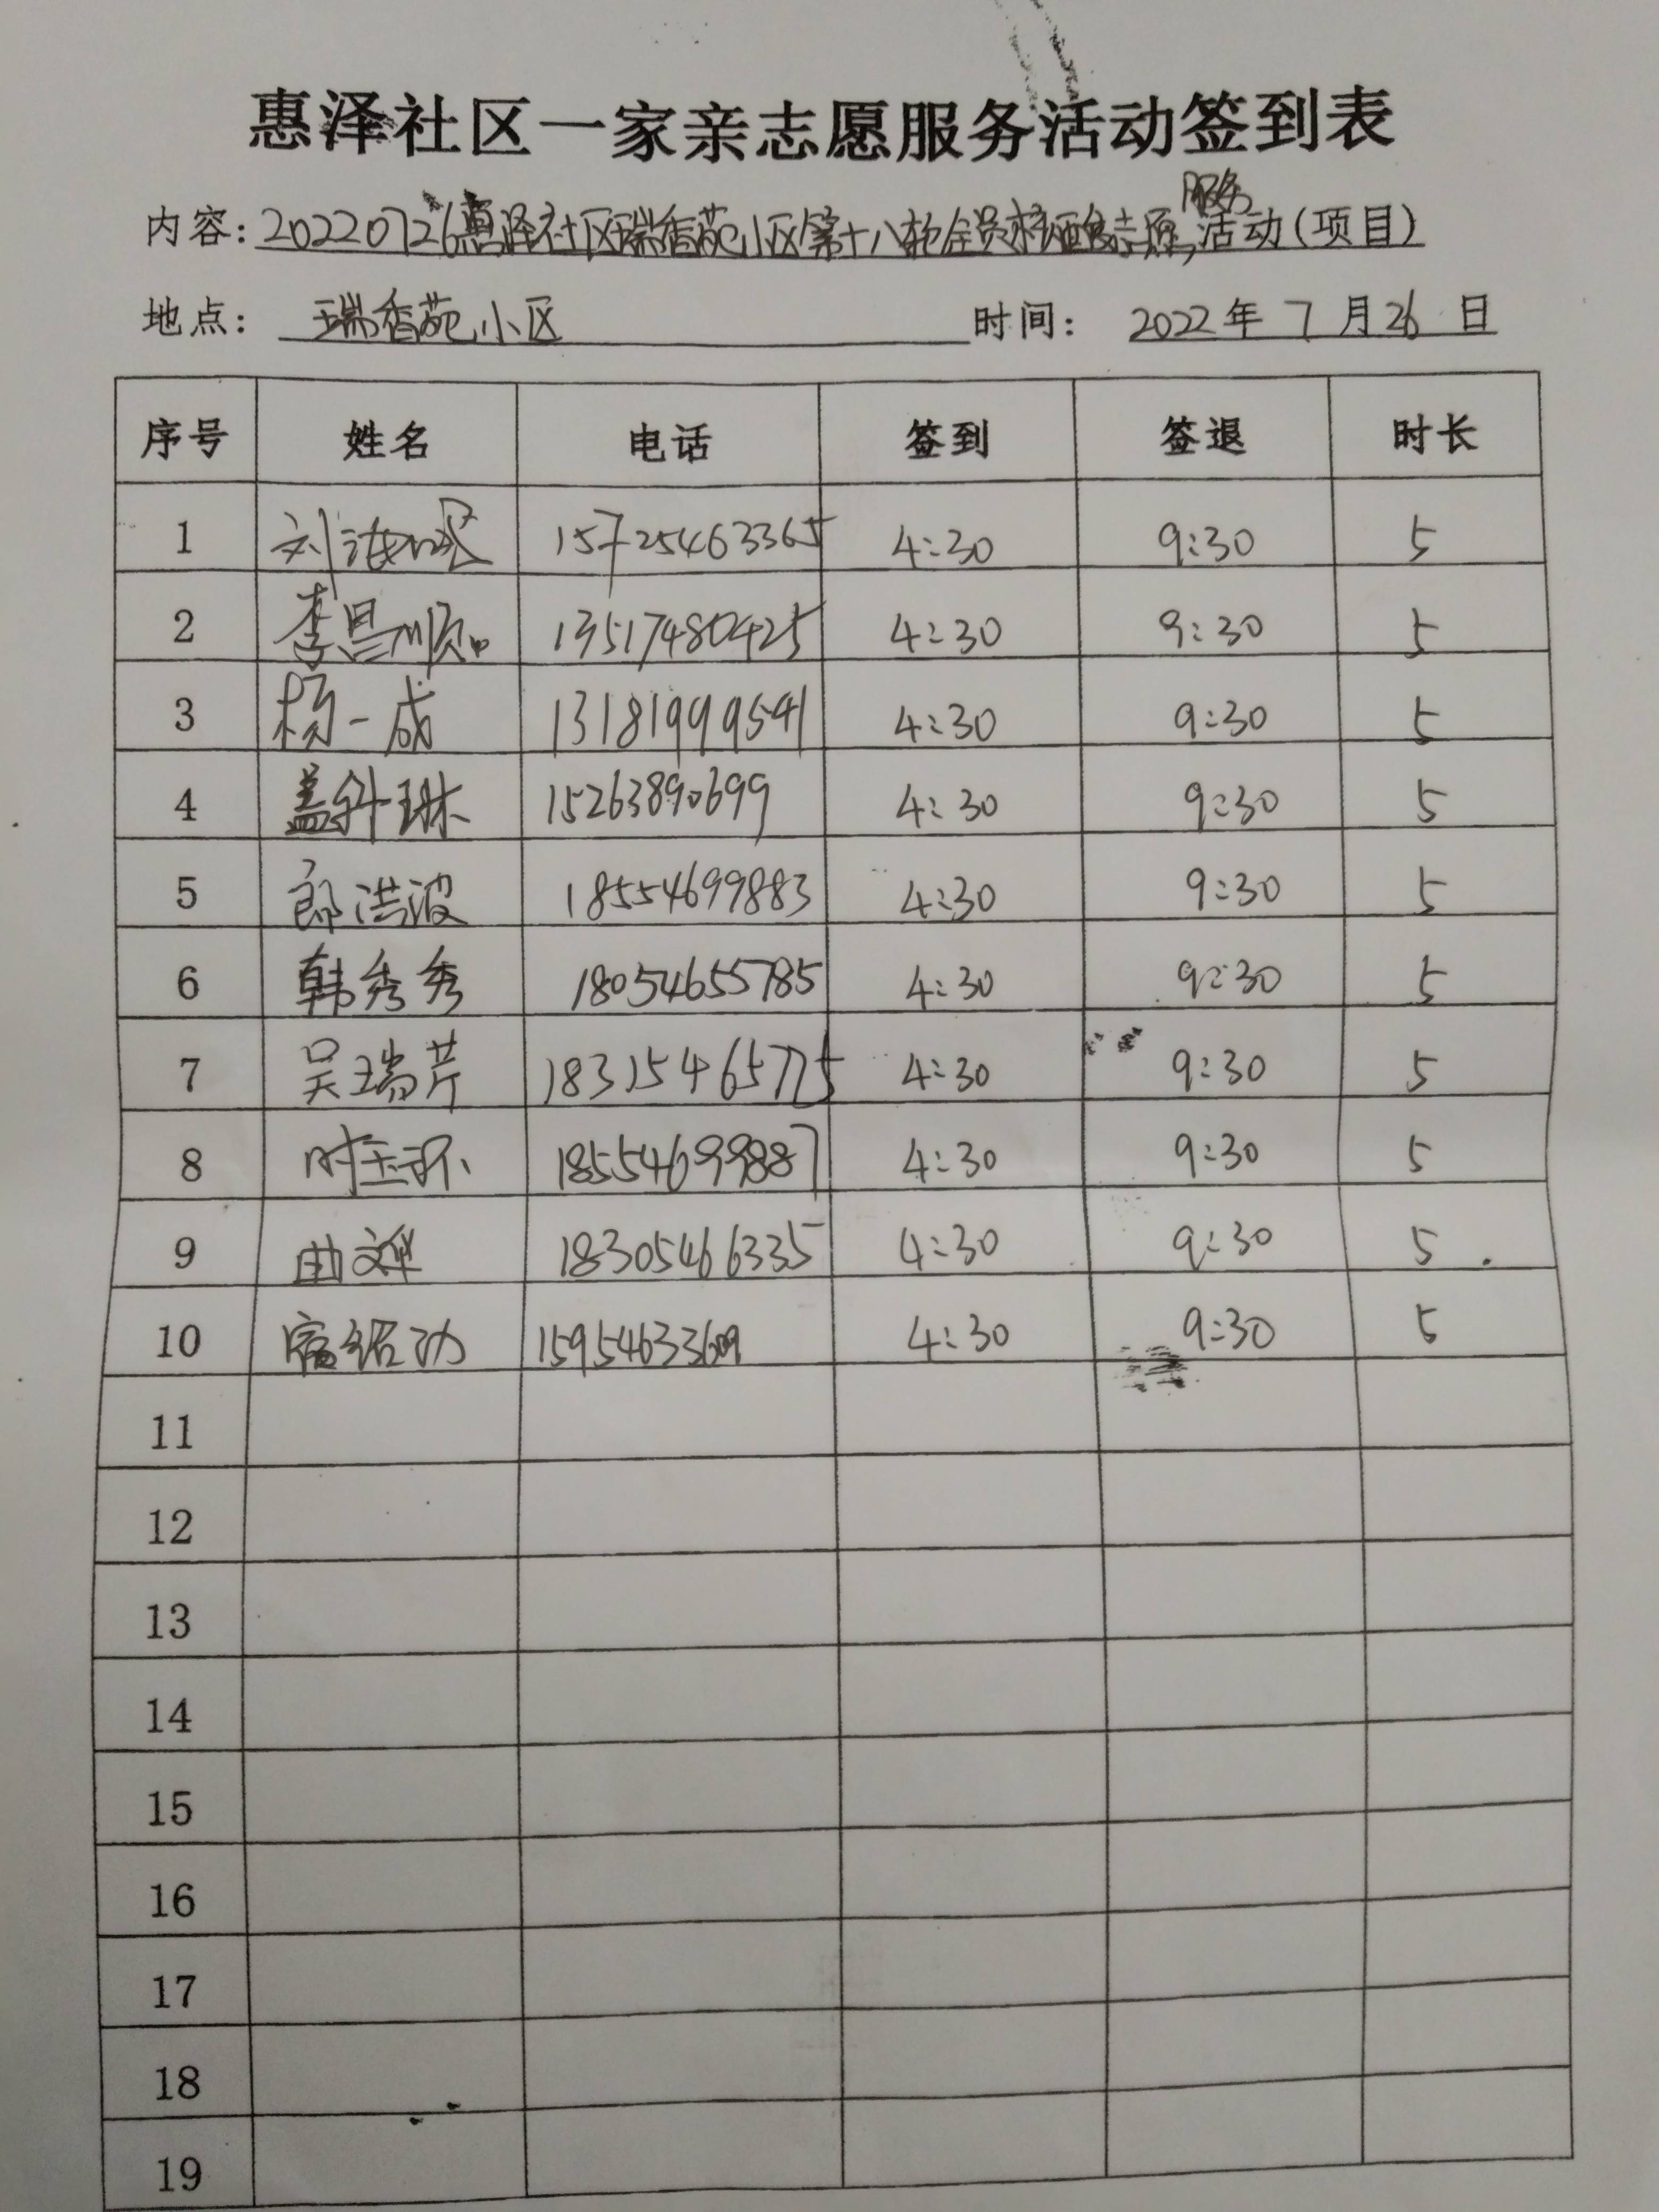 惠泽社区一家亲志愿服务活动签到表
服务
内容：20220726惠泽社区瑞香苑小区第十八轮全员核酸志愿，活动（项目）
地点： 瑞香苑小区 时间： 2022年 7月26日
序号 姓名 电话 签到 签退 时长
1 刘 15725463365 4:30 9:30 5
2 李昌顺 13517480425 4:30 9:30 5
3 杨一成 13181999541 4:30 9:30 5
4 盖 琳 15263890699 4:30 9:30 5
5 郎洪波 18554699883 4:30 9:30 5
6 韩秀秀 18054655785 4:30 9:30 5
7 吴瑞芹 18315465775 4:30 9:30 5
8 时玉环 18554699887 4:30 9:30 5
9 曲文 18305466335 4:30 9:30 5
10 宿绍功 15954633609 4:30 9:30 5
11
12
13
14
15
16
17
18
19